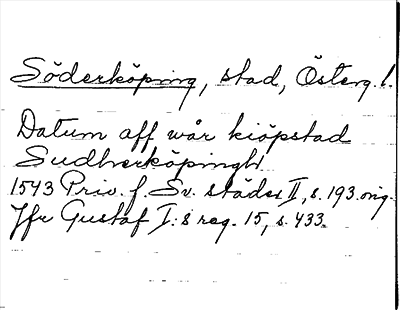 Söderköping, stad, Österg. l.
Datum aff wår kiöpstad
Sudherköpingh
1543 Priv. f. Sv. städer II, s. 193. orig.
Jfr Gustaf I:s reg. 15, s. 433.